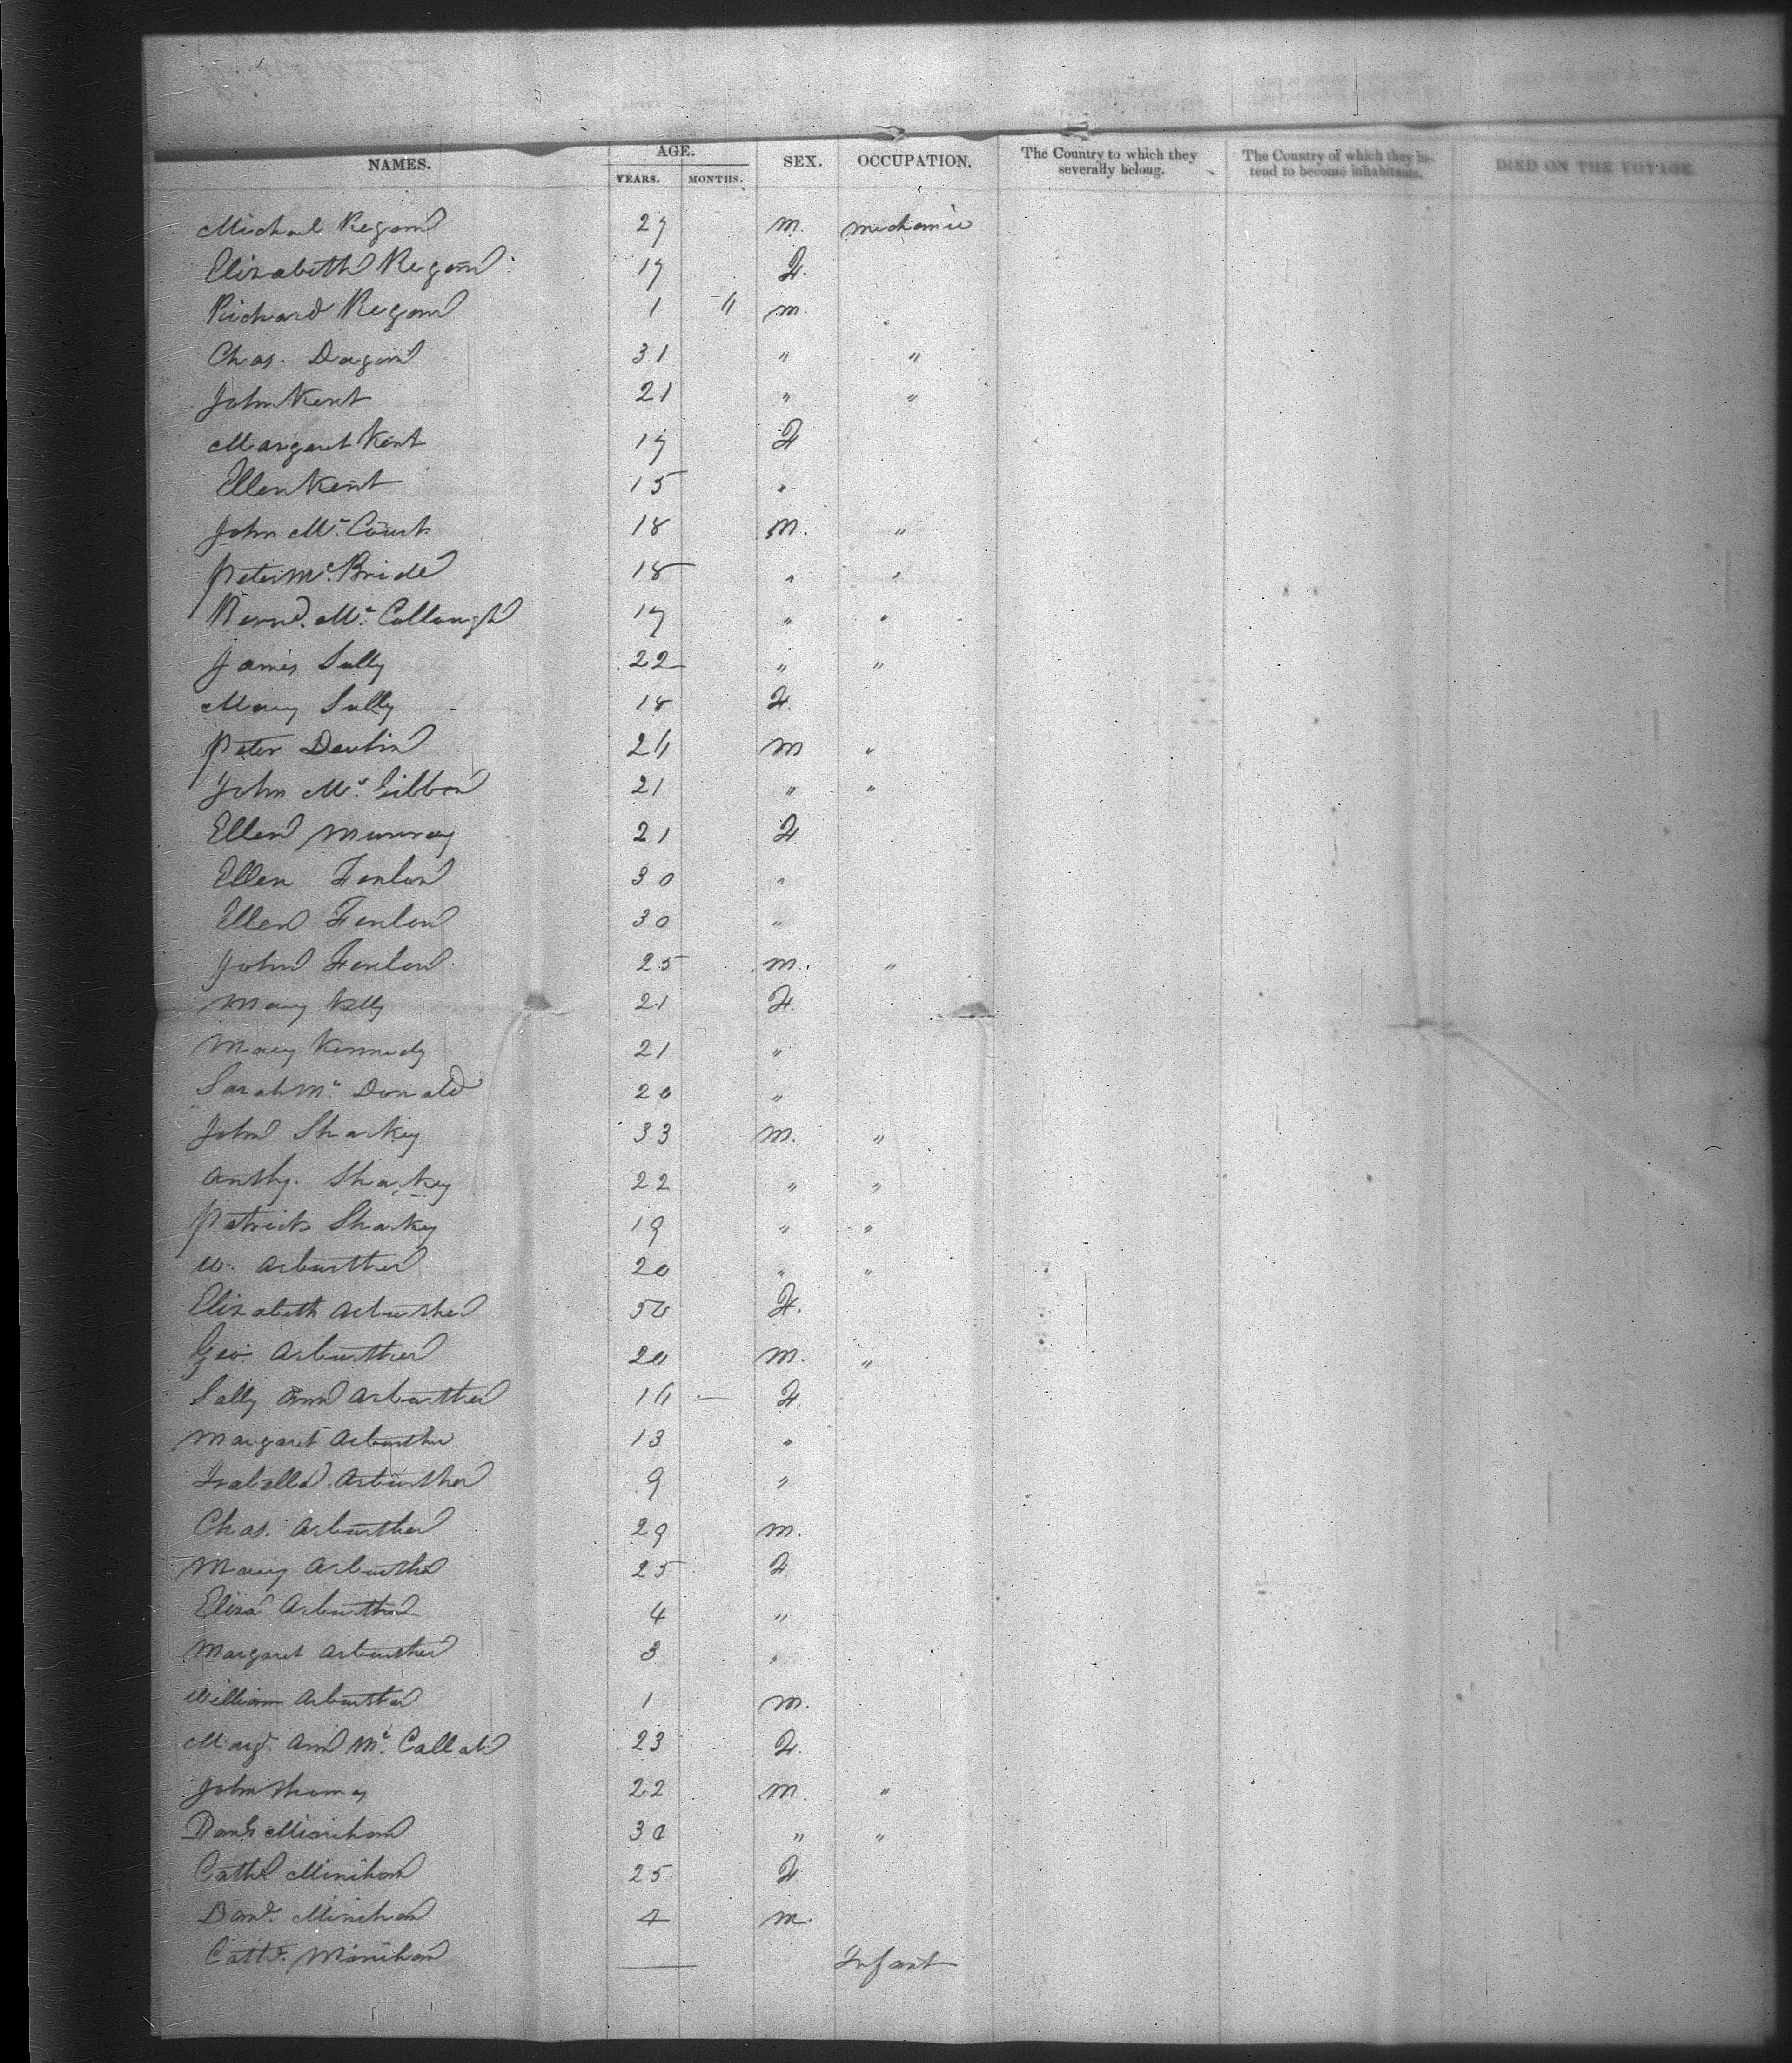 NAMES. AGE. YEARS. MONTHS. SEX. OCCUPATION. The Country to which they severally belong. The Country of which they intend to become inhabitants. DIED ON THE VOYAGE
Michael Regan 27 M. Mechanic
Elizabeth Regan 17 F.
Richard Regan 1 " M.
Chas. Dagan 31 " "
John Kent 21 " "
Margaret Kent 17 F
Ellen Kent 15 "
John Mc. Court 18 M. "
Peter Mc. Bride 18 " "
Bernd. Mc. Collough 17 " "
James Sally 22 " "
Mary Sally 18 F.
Peter Devlin 24 M "
John Mc. Gibbon 21 " "
Ellen Murray 21 F
Ellen Fenlon 30 "
Ellen Fenlon 30 "
John Fenlon 25 M. "
Mary Kelly 21 F.
Mary Kennedy 21 "
Sarah Mc. Donald 20 "
John Sharkey 33 M. "
Anthy. Sharkey 22 " "
Patrick Sharkey 19 " "
W. Arburther 20 " "
Elizabeth Arburther 50 F.
Geo. Arburther 20 M. "
Sally Ann Arburther 14 — F.
Margaret Arburther 13 "
Isabella Arburther 9 "
Chas. Arburther 29 M.
Mary Arburther 25 F
Eliza Arburther 4 "
Margaret Arburther 3 "
William Arburther 1 M.
Margt. Ann Mc. Callah 23 F.
John Thomas 22 M. "
Danl. Minihan 30 " "
Cath. Minihan 25 F.
Danl. Minihan 4 M.
Cath. Minihan — Infant